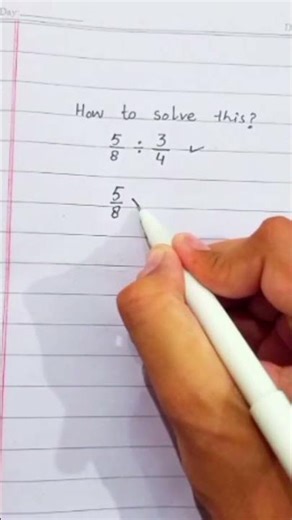 Day
How to solve this?
5/8 ÷ 3/4 ✓
5/8